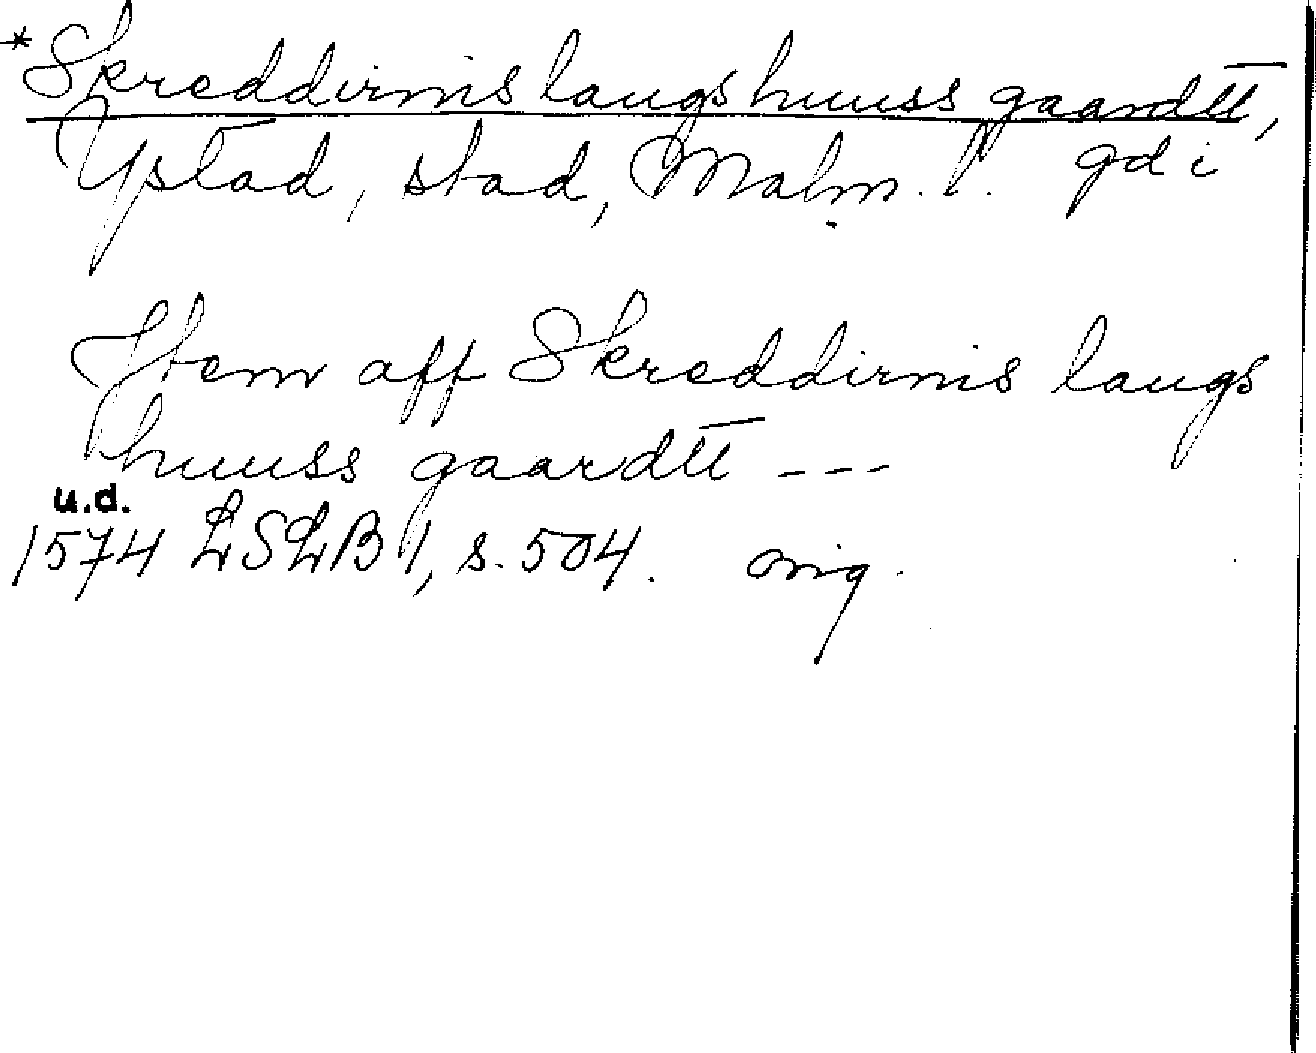 *Skreddirnis laugs huuss gaardtt,
Ystad, stad, Malm. l. gd i
Jtem aff Skreddirnis laugs
huuss gaardtt ---
u.d.
1574 LSLB 1, s. 504. orig.